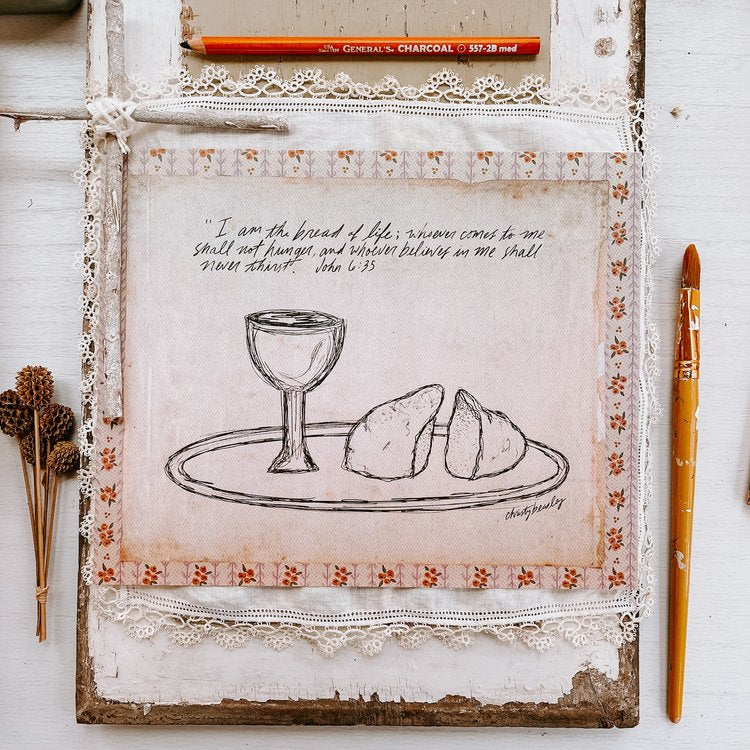 USA GENERAL'S CHARCOAL 557-2B med
"I am the bread of life; whoever comes to me
shall not hunger, and whoever believes in me shall
never thirst. John 6:35
christybeasley